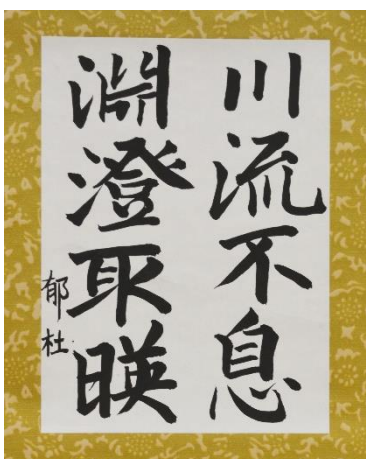 川流不息
淵澄取暎
郁杜